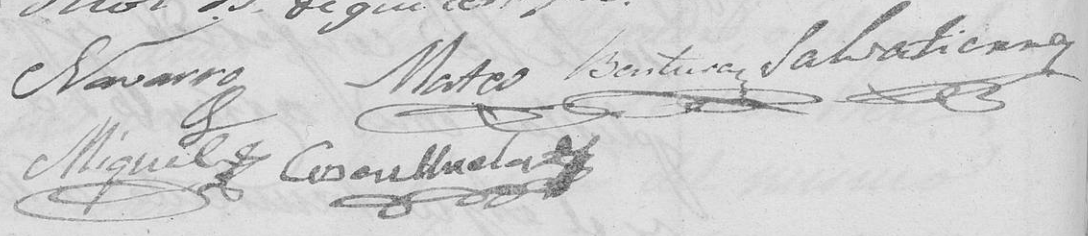 Navarro Mateo Bentura Salvatierra
Miguel Cosculluela